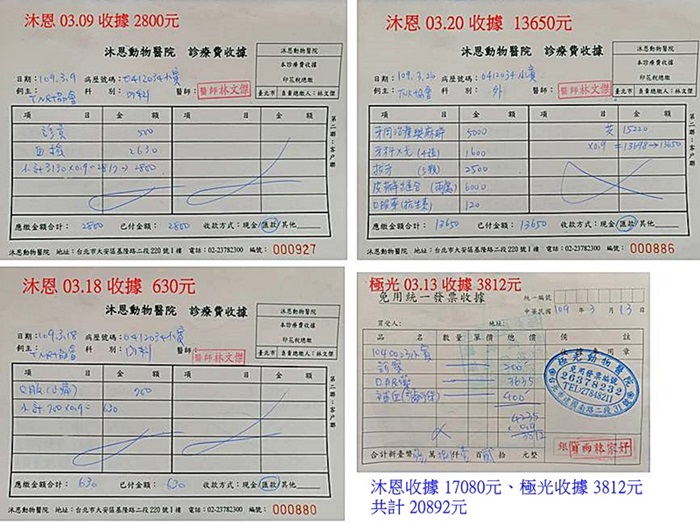 沐恩 03.09 收據 2800元
沐恩動物醫院 診療費收據
沐恩動物醫院
本診療費收據
印花稅總繳
臺北市 負責總繳人:林文傑
日期:109.3.9 病歷號碼:0412034小寶
飼主:TNR協會 科別:內科 醫師:醫師林文傑
項目 金額 項目 金額
診察 500
血檢 2630
小計3130×0.9=2817→2800
第二聯:客戶聯
應繳金額合計:2800 已付金額:2800 收款方式:現金/匯款/其他
沐恩動物醫院 地址:台北市大安區基隆路二段220號1樓 電話:02-23782300 編號:000927
沐恩 03.20 收據 13650元
沐恩動物醫院 診療費收據
沐恩動物醫院
本診療費收據
印花稅總繳
臺北市 負責總繳人:林文傑
日期:109.3.20 病歷號碼:0412034小寶
飼主:TNR協會 科別:外 醫師:醫師林文傑
項目 金額 項目 金額
5000 共 15220
牙科X光(4張) 1600 ×0.9=13698→13650
拔牙 2500
6000
口服藥(抗生素) 120
第二聯:客戶聯
應繳金額合計:13650 已付金額:13650 收款方式:現金/匯款/其他
沐恩動物醫院 地址:台北市大安區基隆路二段220號1樓 電話:02-23782300 編號:000886
沐恩 03.18 收據 630元
沐恩動物醫院 診療費收據
沐恩動物醫院
本診療費收據
印花稅總繳
臺北市 負責總繳人:林文傑
日期:109.3.18 病歷號碼:0412034小寶
飼主:TNR協會 科別:內科 醫師:醫師林文傑
項目 金額 項目 金額
700
小計700×0.9= 630
第二聯:客戶聯
應繳金額合計:630 已付金額:630 收款方式:現金/匯款/其他
沐恩動物醫院 地址:台北市大安區基隆路二段220號1樓 電話:02-23782300 編號:000880
極光 03.13 收據 3812元
免用統一發票收據
統一編號
中華民國109年3月13日
買受人: 地址:
品名 數量 單價 總價 備註
診察 200
口服藥 3635
400
4235
×0.9
3812
極光動物醫院
免用發票編號
26378232
TEL:27848211
合計新台幣 萬 仟 佰 拾 元整
沐恩收據 17080元、極光收據 3812元
共計 20892元